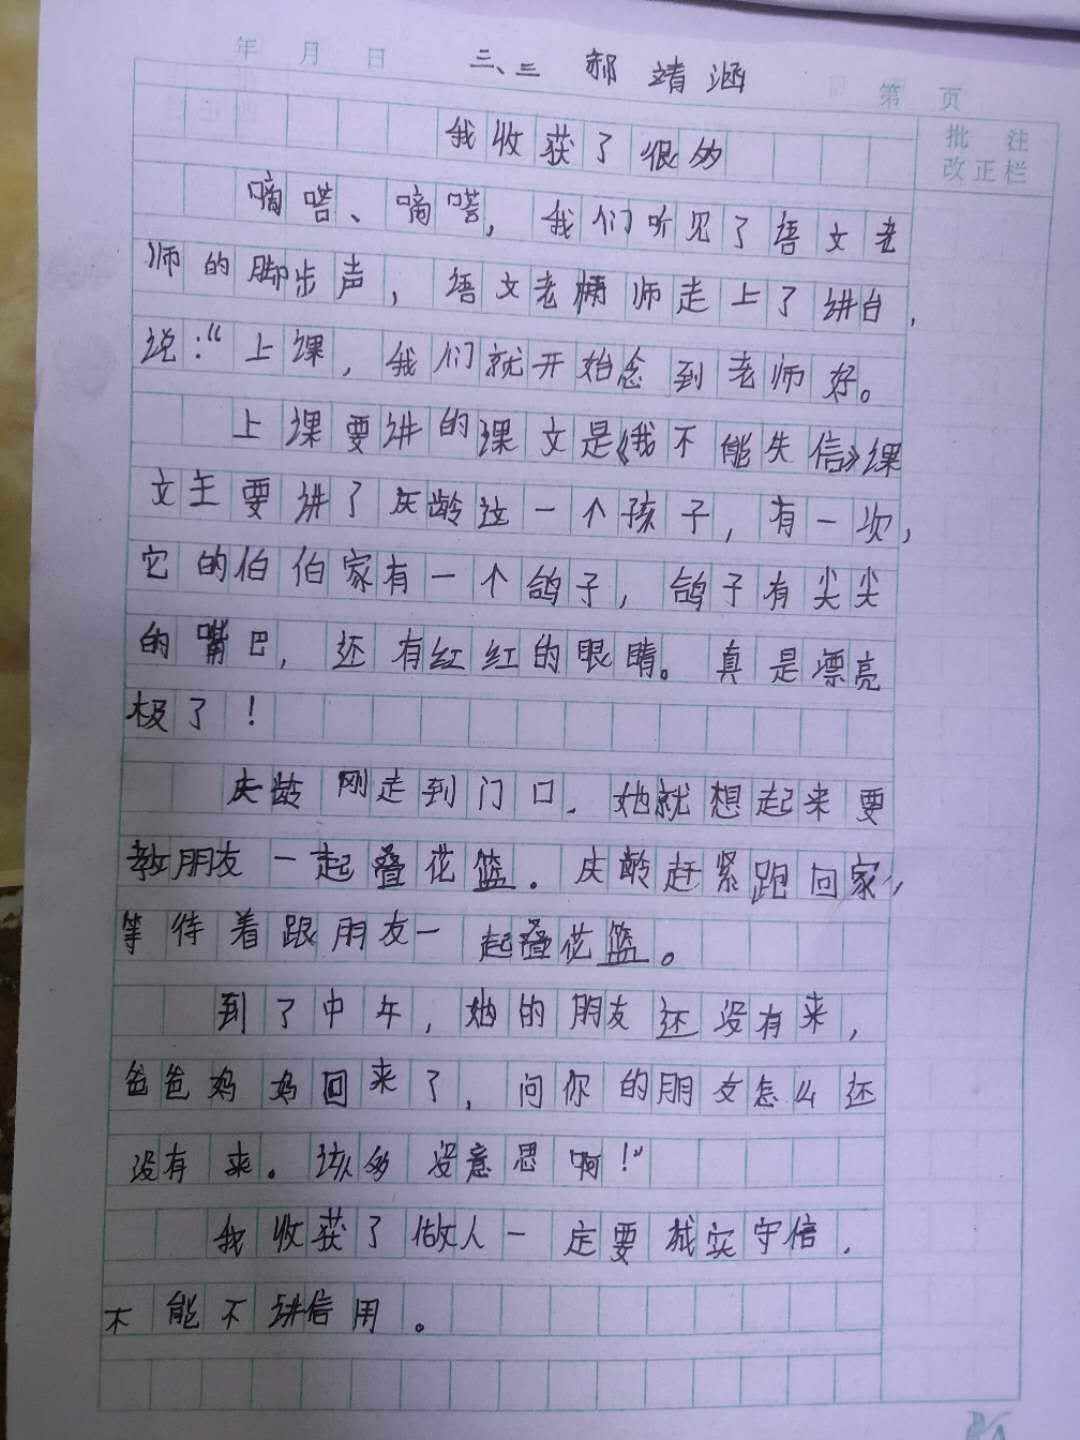 年 月 日 三、三 郝靖涵 第 页
批 注
改正栏
我收获了很多
嘀嗒、嘀嗒，我们听见了语文老
师的脚步声，语文老师走上了讲台，
说：“上课，我们就开始念到老师好。
上课要讲的课文是《我不能失信》课
文主要讲了庆龄这一个孩子，有一次，
它的伯伯家有一个鸽子，鸽子有尖尖
的嘴巴，还有红红的眼睛。真是漂亮
极了！
庆龄刚走到门口．她就想起来要
教朋友一起叠花篮．庆龄赶紧跑回家，
等待着跟朋友一起叠花篮。
到了中午，她的朋友还没有来，
爸爸妈妈回来了，问你的朋友怎么还
没有来。该多没意思啊！”
我收获了做人一定要诚实守信．
不能不讲信用。